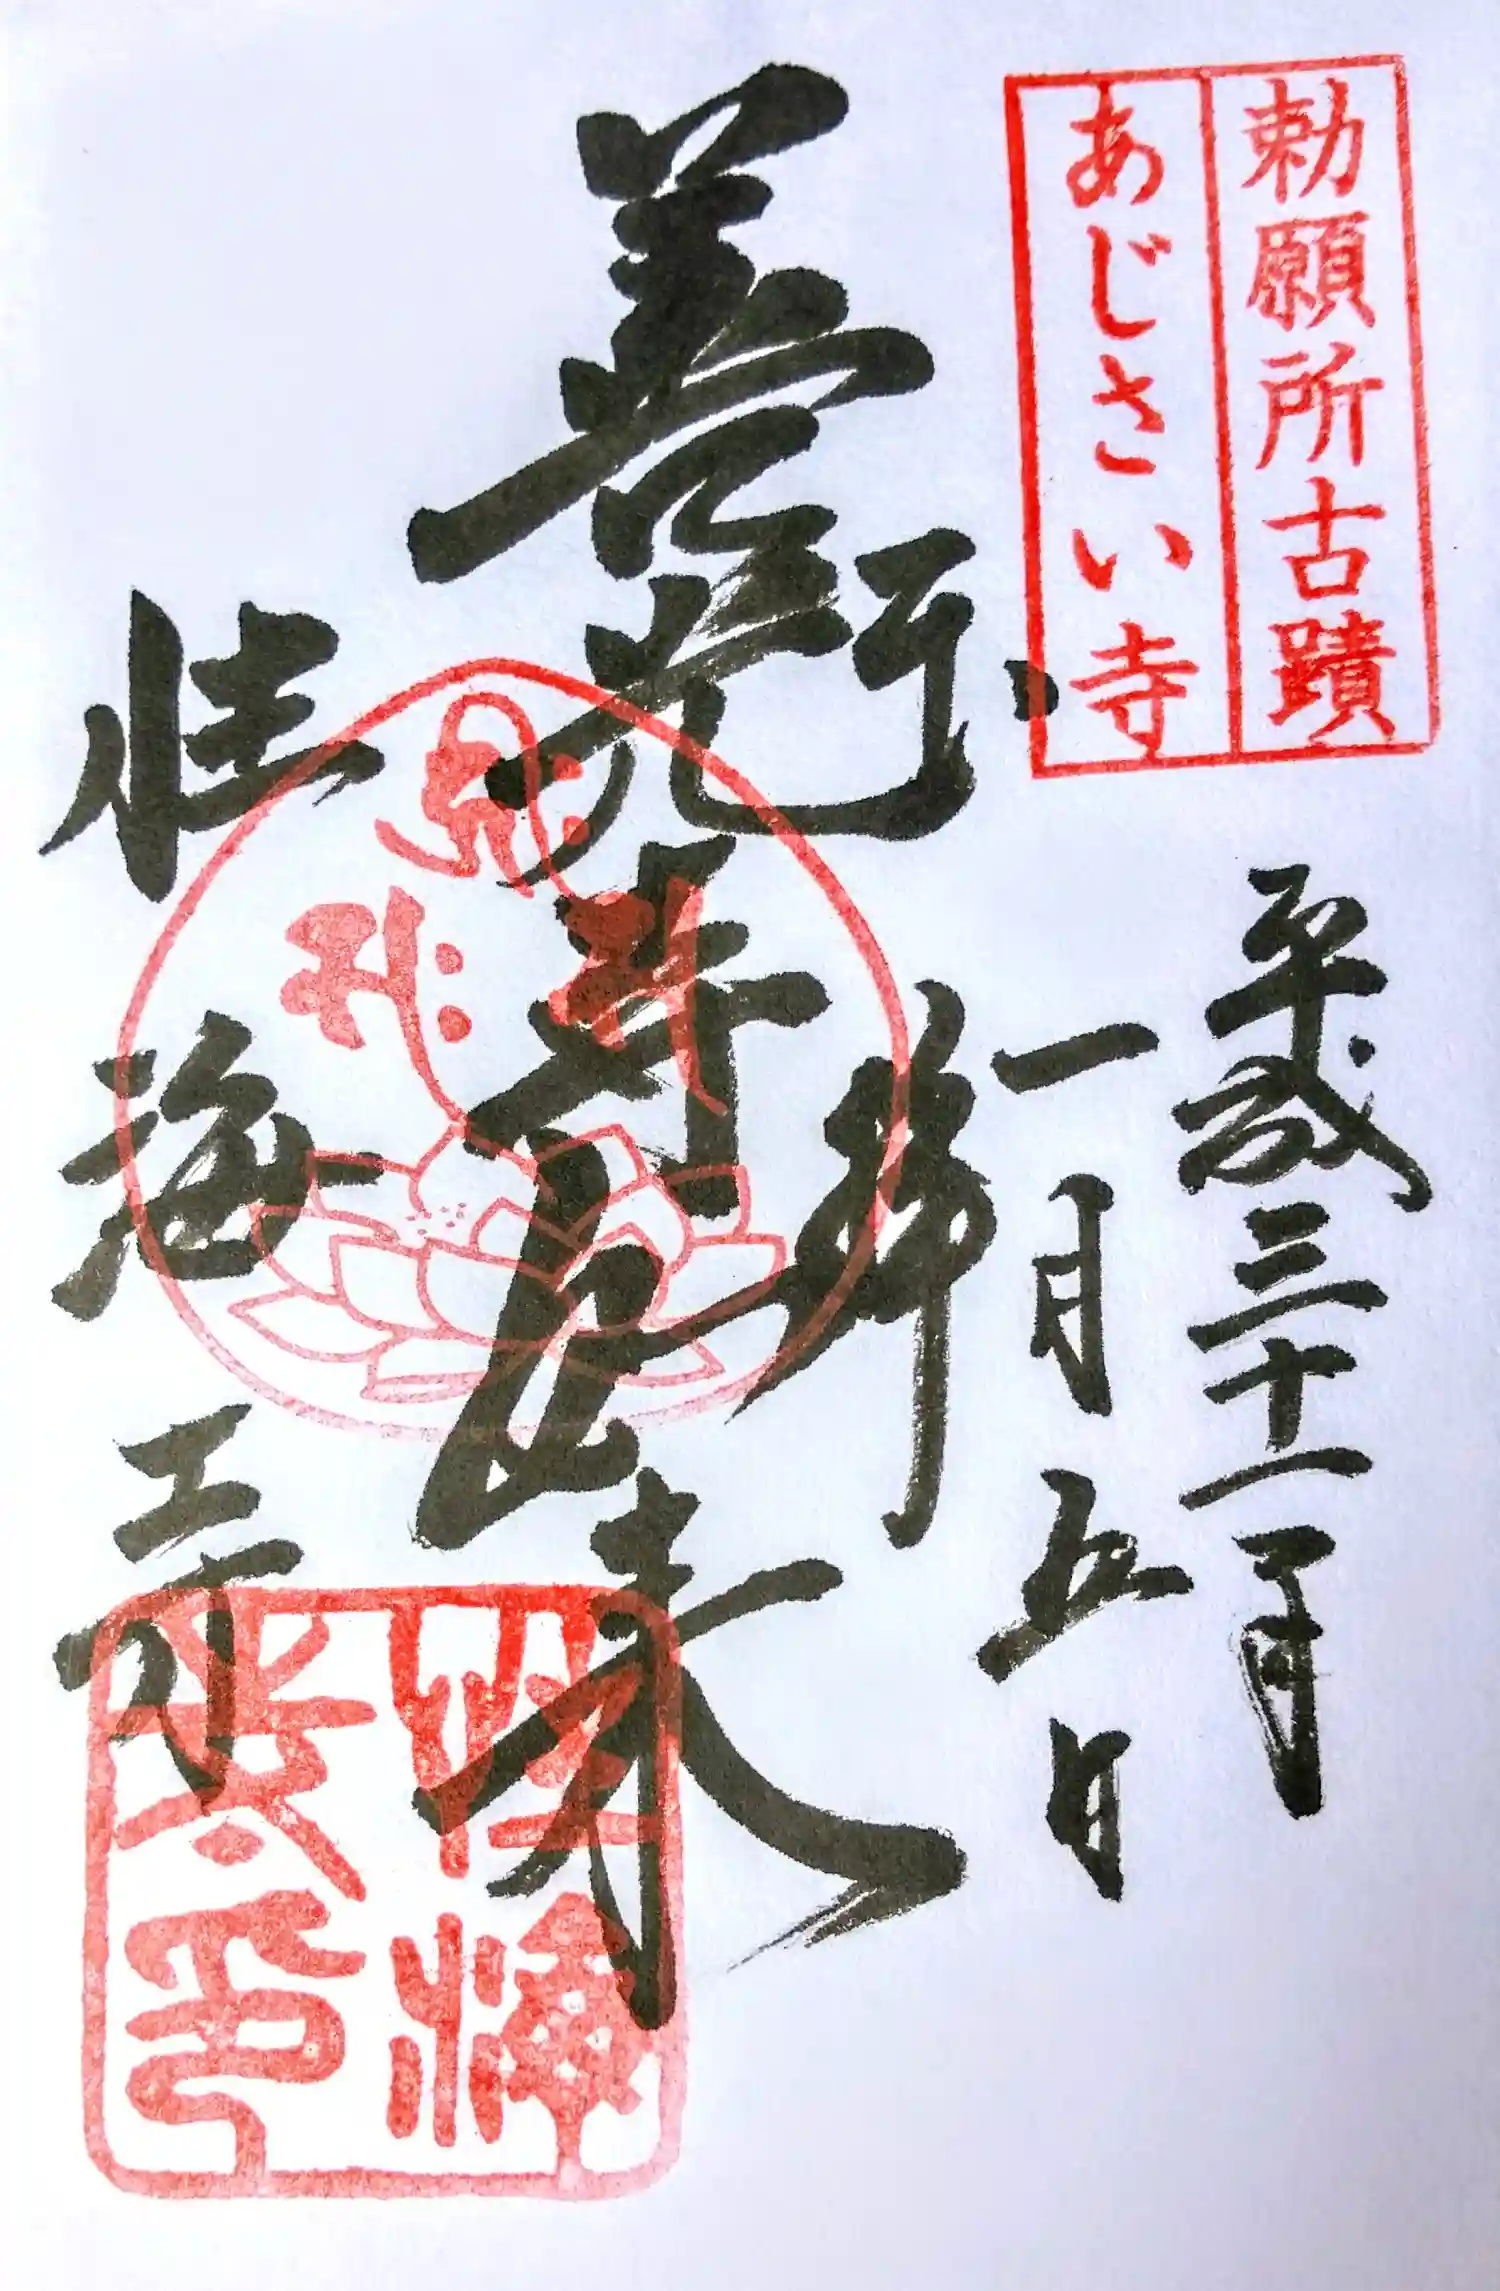 勅願所古蹟
あじさい寺
平成三十一年
一月五日
拝
善光寺如来
性海寺